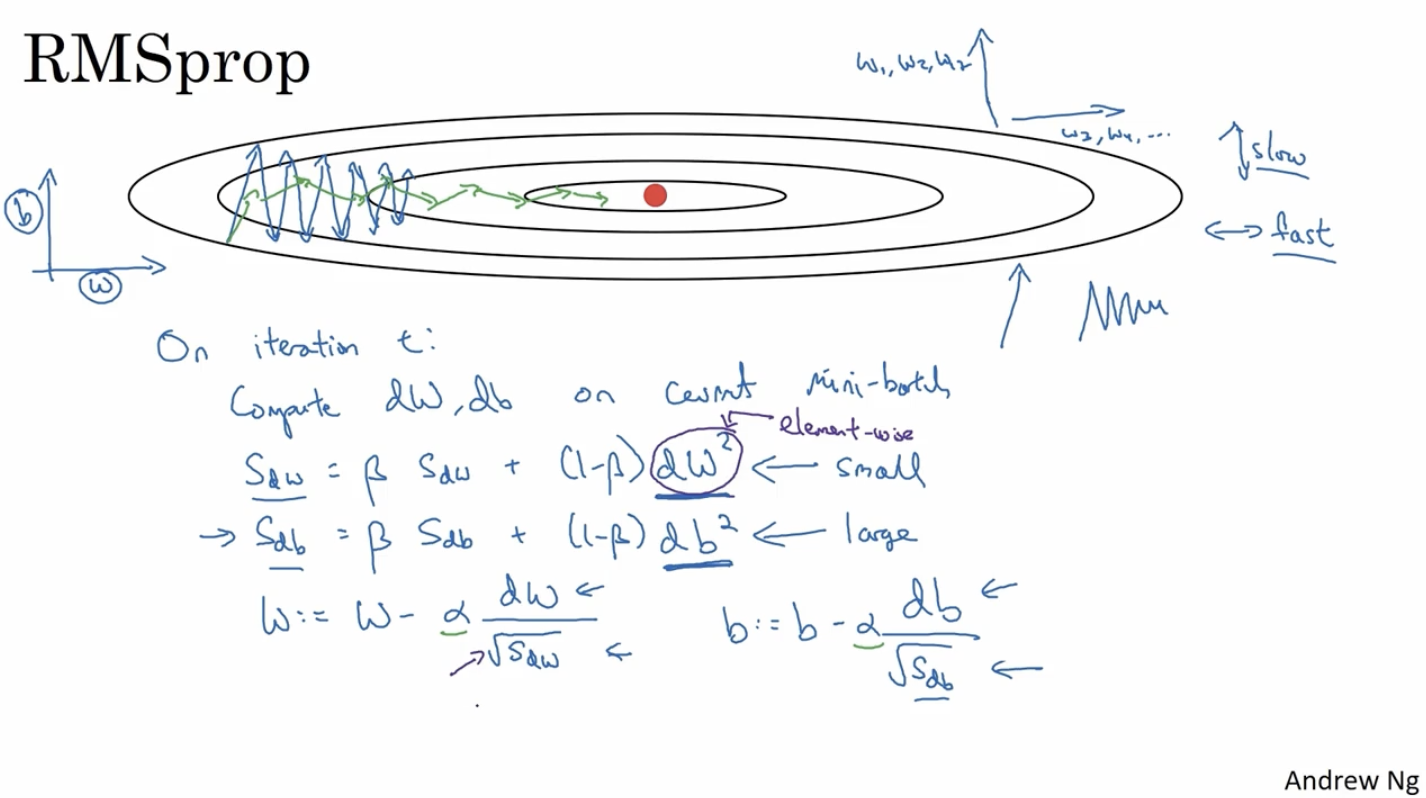 RMSprop
w₁, w₂, w₂
w₃, w₄, ...
slow
fast
b
w
On iteration t:
Compute dW, db on current mini-batch
element-wise
S_dw = β S_dw + (1-β) dW² ← small
→ S_db = β S_db + (1-β) db² ← large
W := W - α dW / √S_dw ←
b := b - α db / √S_db ←
Andrew Ng